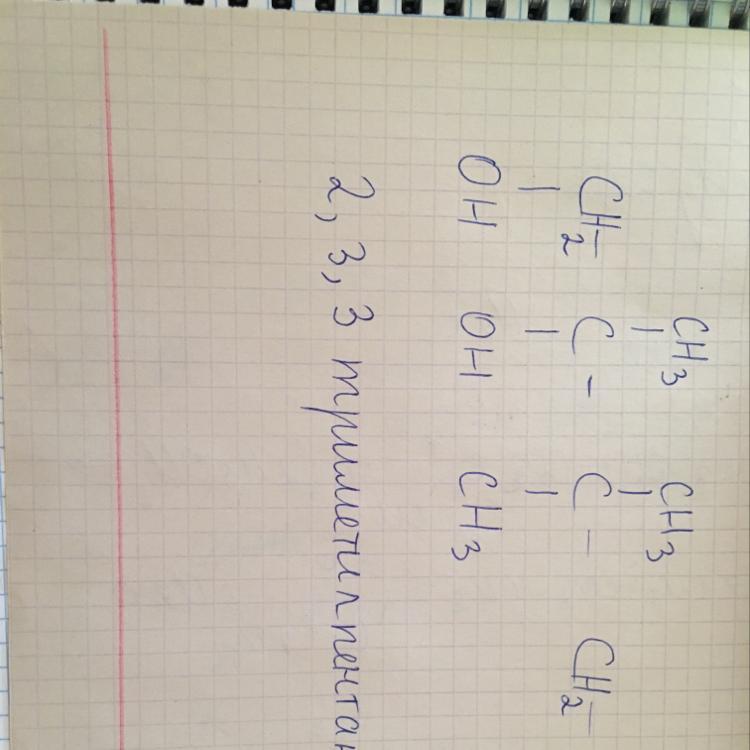 CH3 CH3
CH2- C - C - CH2-
OH OH CH3
2, 3, 3 триметилпентан